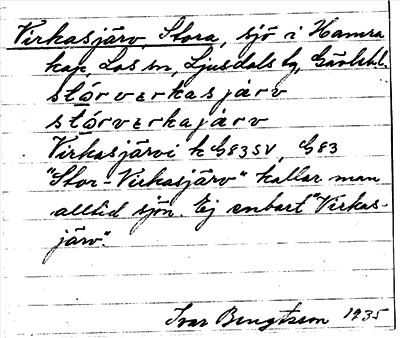 Virkasjärv, Stora, sjö i Hamra
kap, Los sn, Ljusdals tg, Gävlebl.
stó̄rverkasjärv
stó̄rverkajärv
Virkasjärvi k G83SV, G83
"Stor-Virkasjärv" kallar man
alltid sjön. Ej enbart "Virkas-
järv".
Ivar Bengtsson 1935